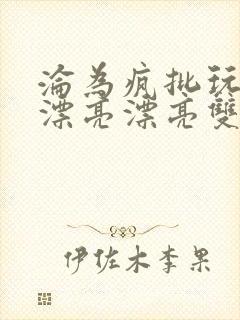 淪為瘋批玩
漂亮漂亮雙
伊佐木李果